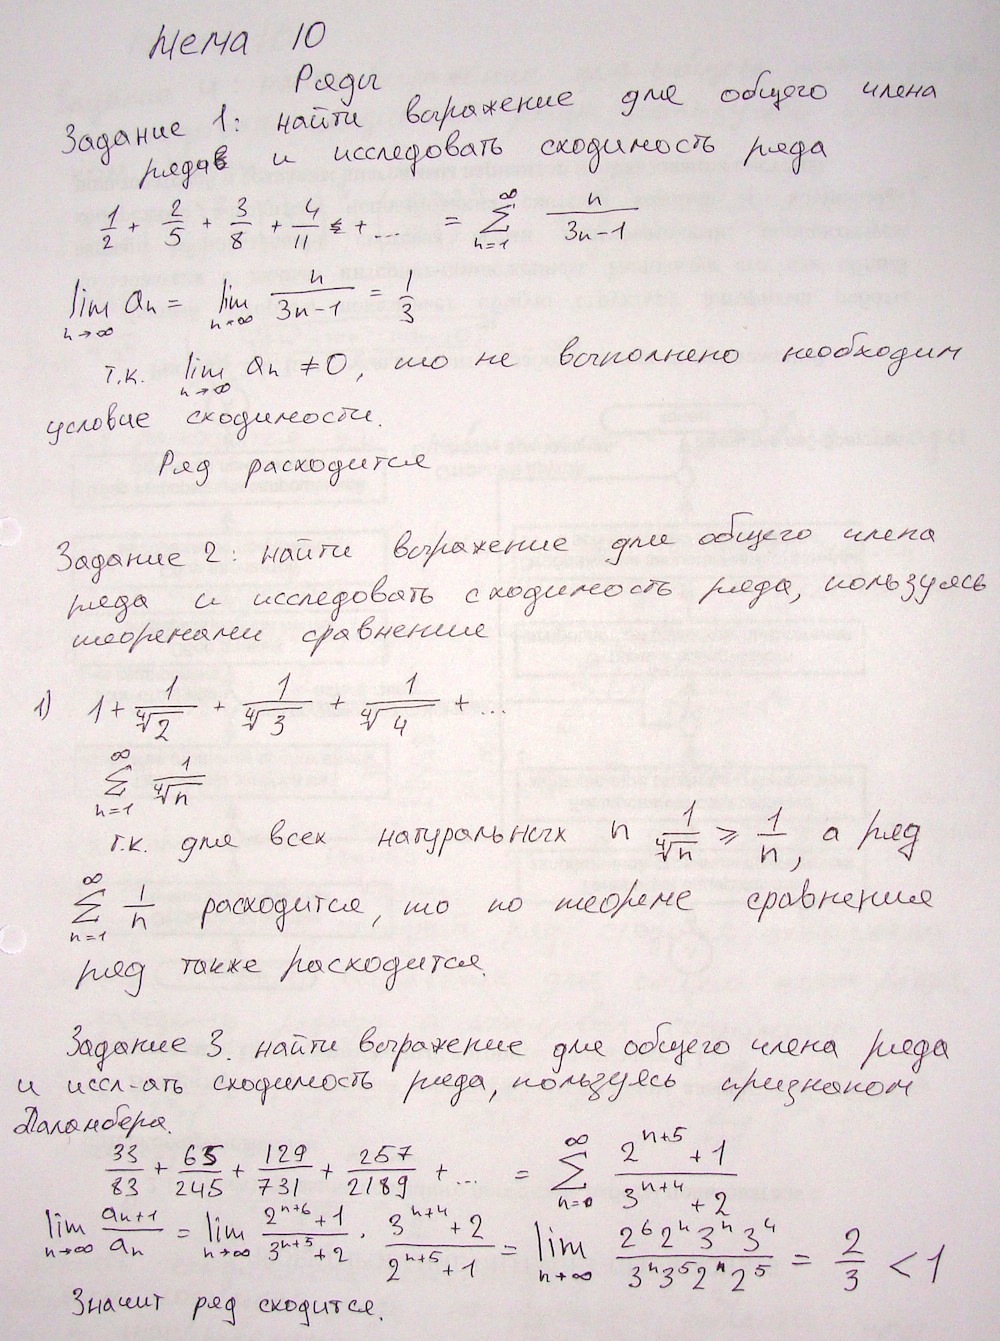 Тема 10
Ряды
Задание 1: найти выражение для общего члена
ряда и исследовать сходимость ряда
1/2 + 2/5 + 3/8 + 4/11 + ... = ∑_{n=1}^{∞} n/(3n-1)
lim_{n→∞} aₙ = lim_{n→∞} n/(3n-1) = 1/3
т.к. lim_{n→∞} aₙ ≠ 0, то не выполнено необходим
условие сходимости.
Ряд расходится
Задание 2: найти выражение для общего члена
ряда и исследовать сходимость ряда, пользуясь
теоремами сравнения
1) 1 + 1/∜2 + 1/∜3 + 1/∜4 + ...
∑_{n=1}^{∞} 1/∜n
т.к. для всех натуральных n 1/∜n ⩾ 1/n, а ряд
∑_{n=1}^{∞} 1/n расходится, то по теореме сравнения
ряд также расходится.
Задание 3. найти выражение для общего члена ряда
и иссл-ать сходимость ряда, пользуясь признаком
Даламбера.
33/83 + 65/245 + 129/731 + 257/2189 + ... = ∑_{n=0}^{∞} (2^{n+5}+1)/(3^{n+4}+2)
lim_{n→∞} a_{n+1}/aₙ = lim_{n→∞} (2^{n+6}+1)/(3^{n+5}+2) · (3^{n+4}+2)/(2^{n+5}+1) = lim_{n→∞} (2^6 2^n 3^n 3^4)/(3^n 3^5 2^n 2^5) = 2/3 < 1
Значит ряд сходится.